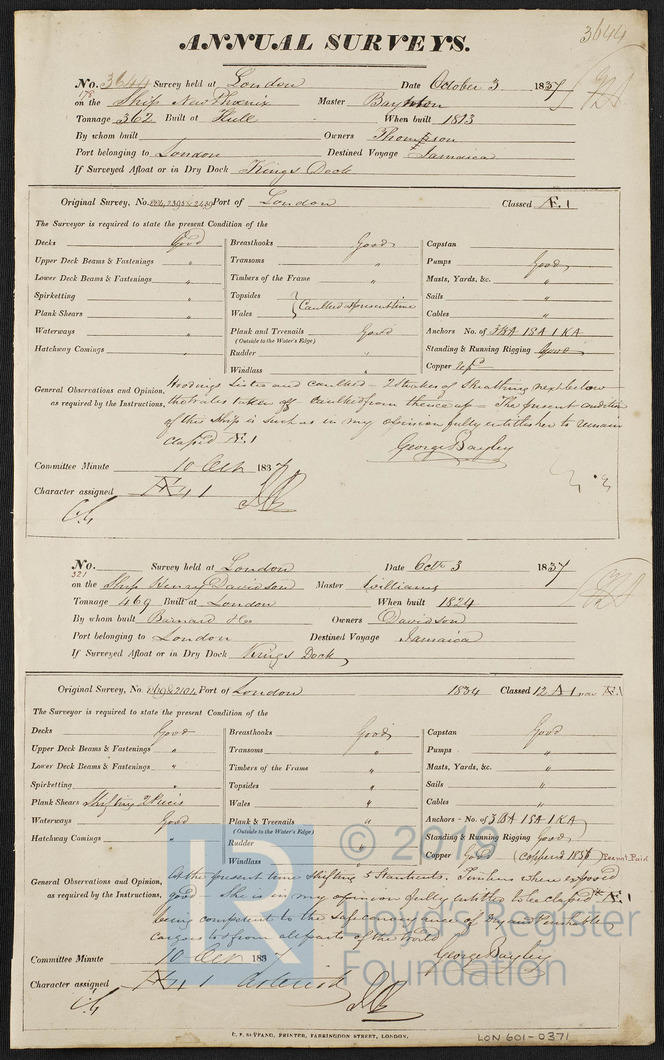 3644
ANNUAL SURVEYS.
No. 3644 Survey held at London Date October 3 1837
178
on the Ship New Phoenix Master Baynton
Tonnage 362 Built at Hull When built 1813
By whom built Owners Thompson
Port belonging to London Destined Voyage Jamaica
If Surveyed Afloat or in Dry Dock Kings Dock
Original Survey, No. Port of London Classed Æ 1
The Surveyor is required to state the present Condition of the
Decks Good
Upper Deck Beams & Fastenings "
Lower Deck Beams & Fastenings "
Spirketting "
Plank Shears "
Waterways "
Hatchway Comings "
Breasthooks Good
Transoms "
Timbers of the Frame "
Topsides
Wales } Caulked at present time
Plank and Treenails Good
(Outside to the Water's Edge)
Rudder "
Windlass "
Capstan
Pumps Good
Masts, Yards, &c. "
Sails "
Cables "
Anchors No. of 3 BA 1 SA 1 KA
Standing & Running Rigging Good
Copper
General Observations and Opinion, Woodings Listed and caulked - 2 strakes of Sheathing next below
as required by the Instructions, the wales taken off caulked from thence up - The present condition
of this Ship is such as in my opinion fully entitles her to remain
classed Æ 1
George Bayley
Committee Minute 10 Octr 1837
Character assigned Æ 1
No. Survey held at London Date Octr 3 1837
321
on the Ship Henry Davidson Master Williams
Tonnage 469 Built at London When built 1824
By whom built Barnard & Co Owners Davidson
Port belonging to London Destined Voyage Jamaica
If Surveyed Afloat or in Dry Dock Kings Dock
Original Survey, No. Port of London 1834 Classed 12 A 1 now Æ 1
The Surveyor is required to state the present Condition of the
Decks Good
Upper Deck Beams & Fastenings "
Lower Deck Beams & Fastenings "
Spirketting "
Plank Shears Shifting 2 Pieces
Waterways Good
Hatchway Comings "
Breasthooks Good
Transoms "
Timbers of the Frame "
Topsides "
Wales "
Plank & Treenails "
(Outside to the Water's Edge)
Rudder
Windlass
Capstan Good
Pumps "
Masts, Yards, &c. "
Sails "
Cables "
Anchors - No. of 3 BA 1 SA 1 KA
Standing & Running Rigging Good
Copper Good (coppered 1836)
General Observations and Opinion, At the present time Shifting 5 Stanchions. Timbers where exposed
as required by the Instructions, good - She is in my opinion fully entitled to be classed Æ 1
being competent to the safe conveyance of dry and perishable
cargoes to & from all parts of the World
George Bayley
Committee Minute 10 Octr 1837
Character assigned Æ 1 asterisk
© 2019
Lloyd's Register
Foundation
LR
PRINTER, FARRINGDON STREET, LONDON.
LON 601-0371